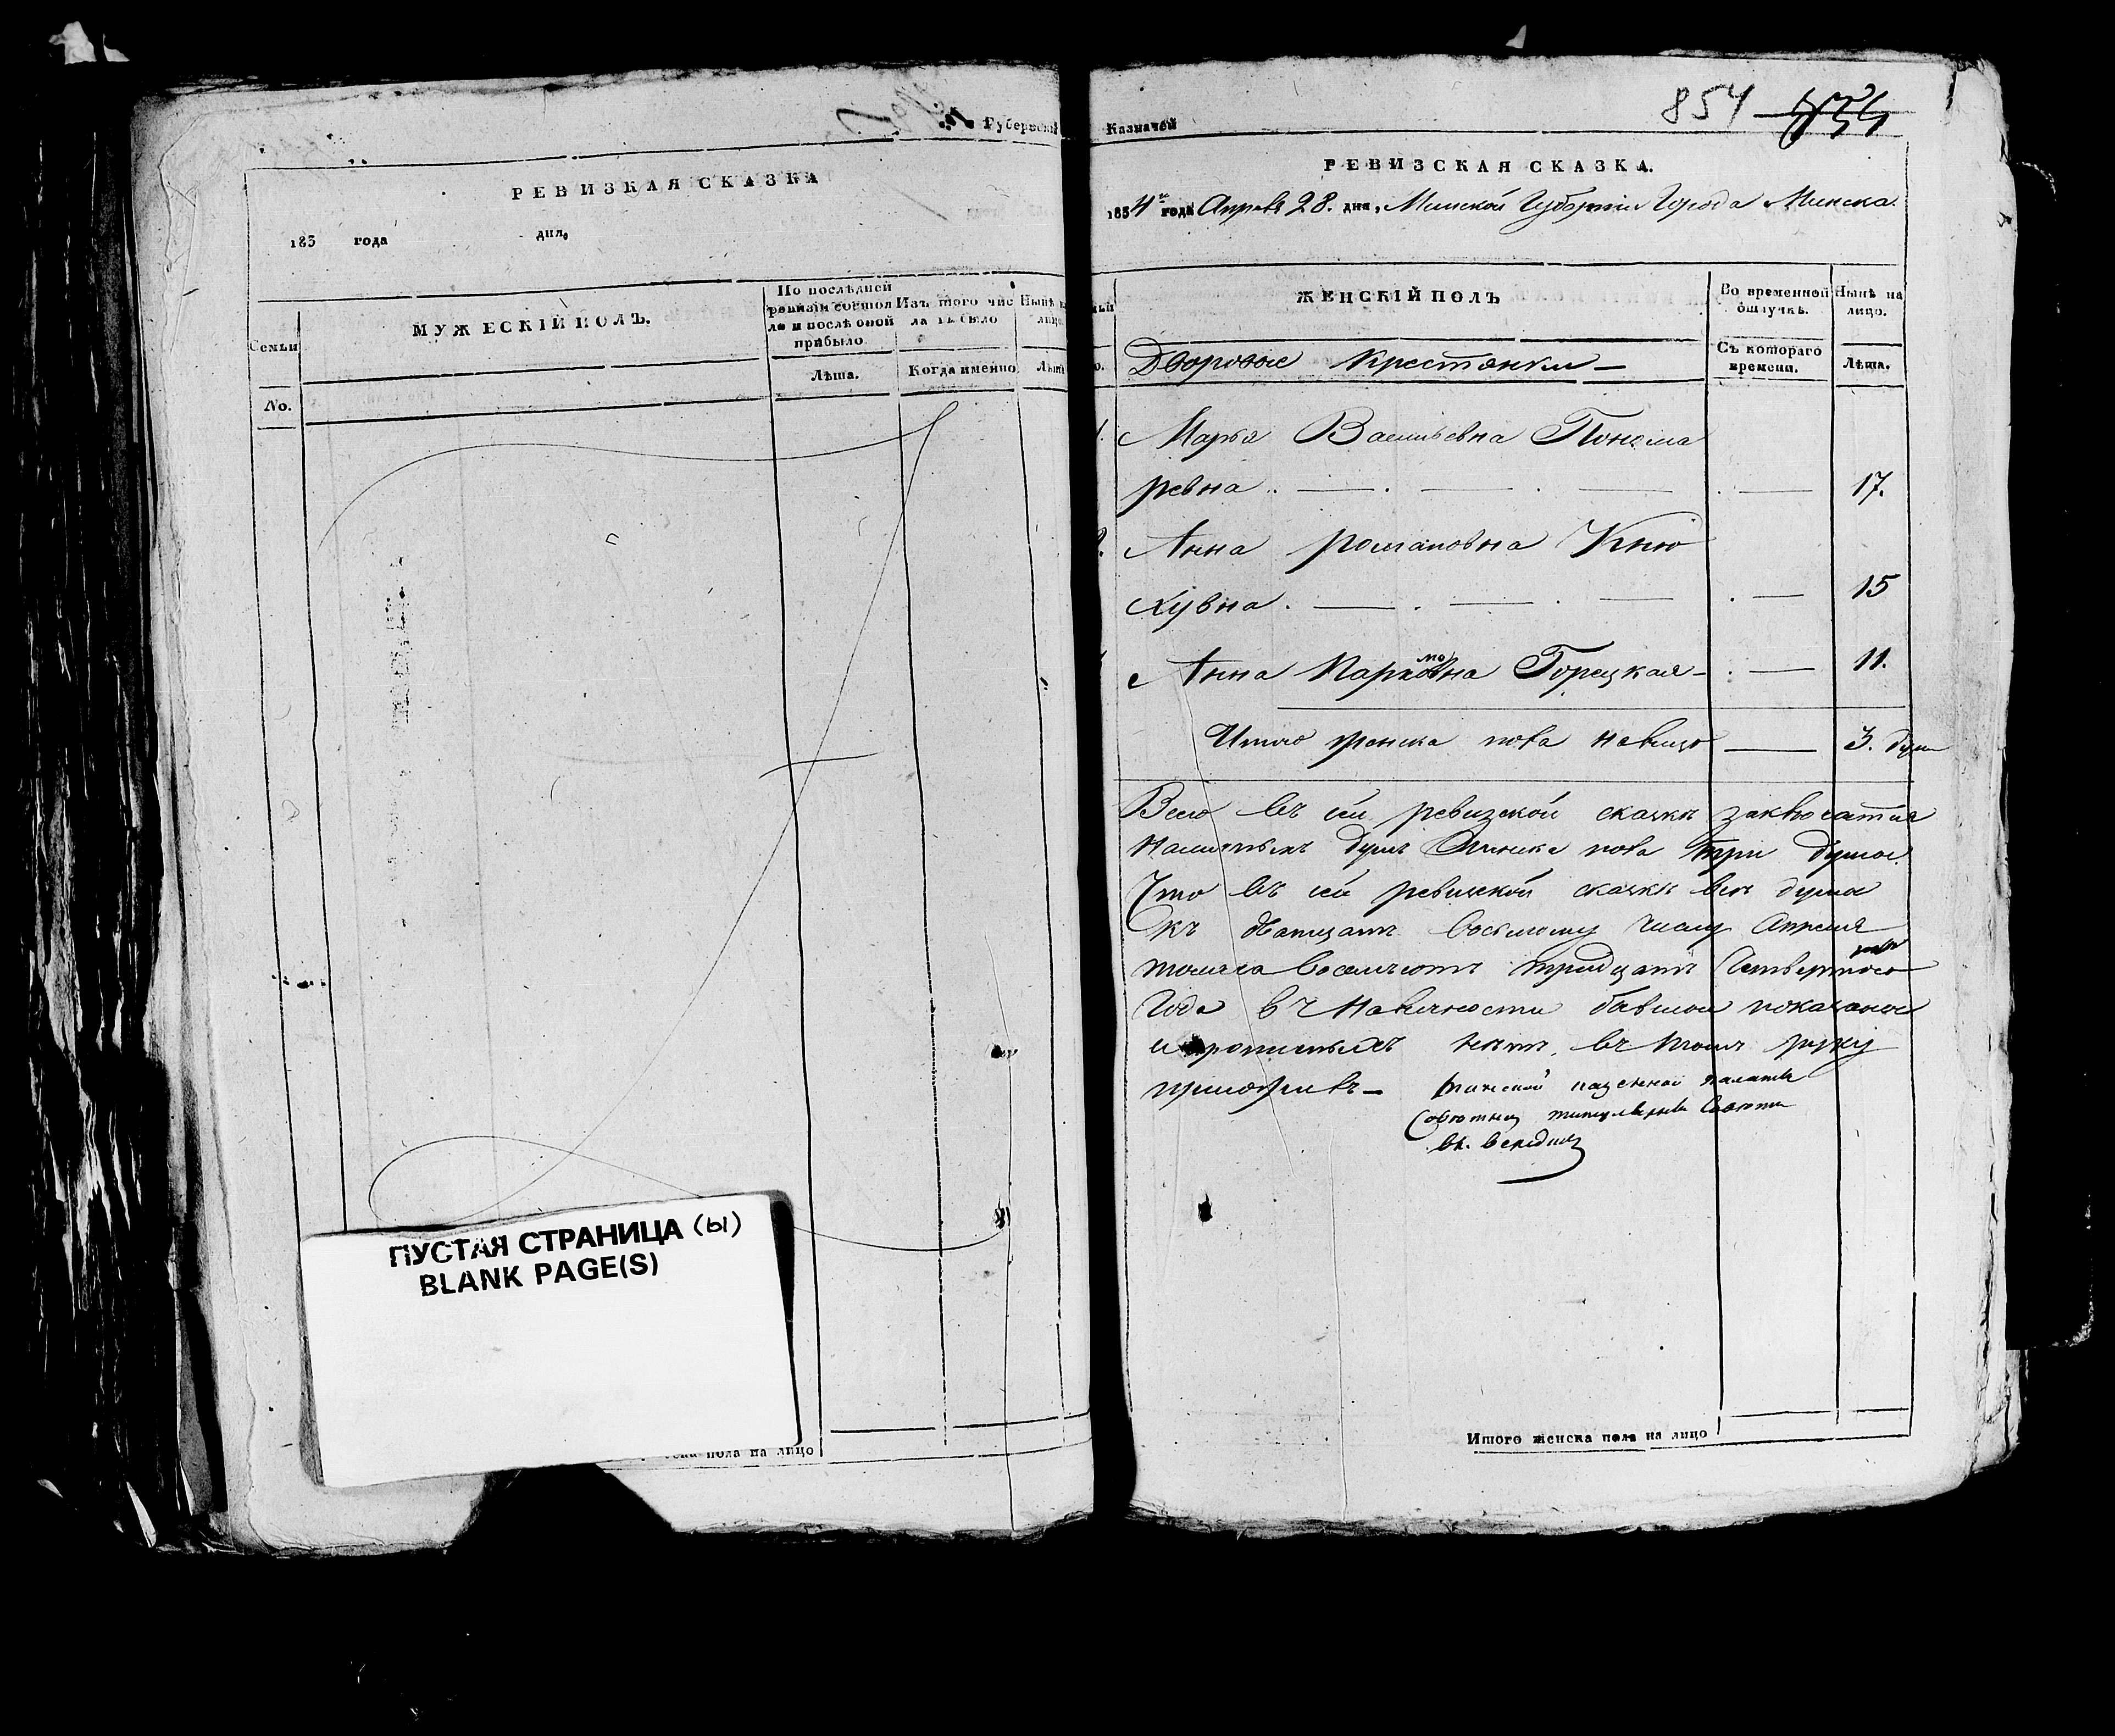 Губернскій Казначей
854
РЕВИЗКАЯ СКАЗКА
183 года дня,
МУЖЕСКІЙ ПОЛЪ.
По послѣдней
ревизіи состоя
ло и послѣ оной
прибыло
Изъ того чис
ла выбыло
Нынѣ на
лицо
Семьи
Лѣта.
Когда именно
Лѣта
No.
ПУСТАЯ СТРАНИЦА (Ы)
BLANK PAGE(S)
пола на лицо
РЕВИЗСКАЯ СКАЗКА.
1834 года Апреля 28. дня, Минской Губерніи Города Минска.
ЖЕНСКІЙ ПОЛЪ
Во временной
отлучкѣ.
Нынѣ на
лицо.
Съ котораго
времени.
Лѣта.
Дворовые Крестянки
Марья Васильевна Понома
ревна 17.
Анна Романовна Кню
хувна 15
Анна Горецкая 11.
Итого женска пола налицо 3. души
Всего въ сей ревизской сказкѣ заключается
наличныхъ душъ женска пола три души.
Что въ сей ревизской сказкѣ все души
къ дватцать восьмому числу Апреля
тысяча восемьсотъ тридцать четвертого
года въ наличности бывшои показаны
и прописныхъ нѣтъ, въ томъ руку
приложилъ
Минской казенной палаты
Советник титулярны Советни
Итого женска пола на лицо